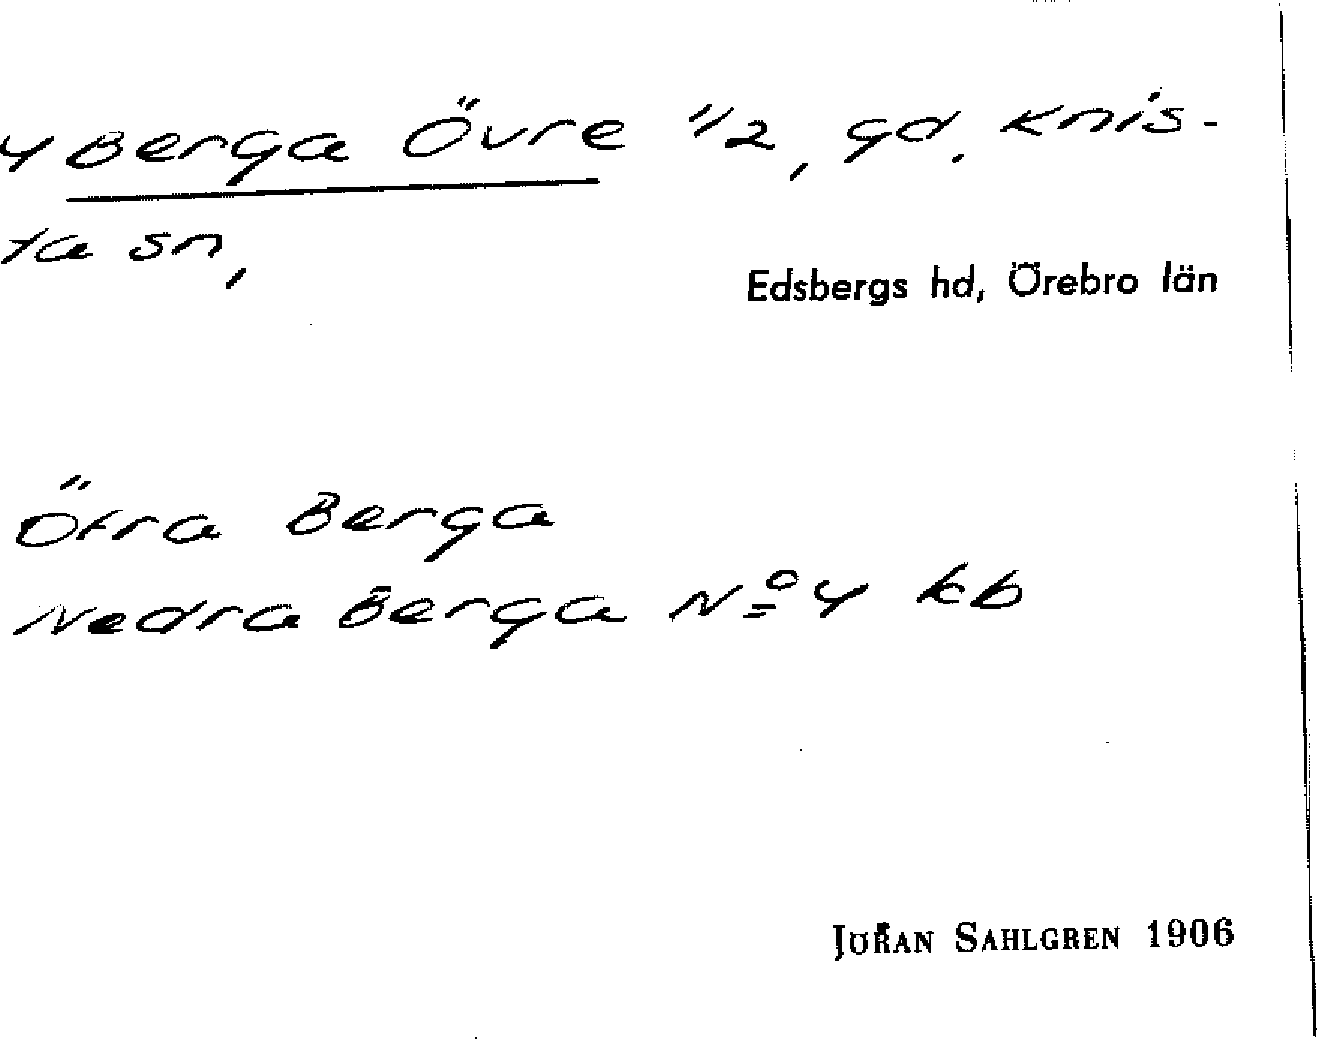 4 Berga Övre 1/2, gd. Knis-
ta sn,
Edsbergs hd, Örebro län
Öfra Berga
Nedra Berga No 4 kb
Jöran Sahlgren 1906